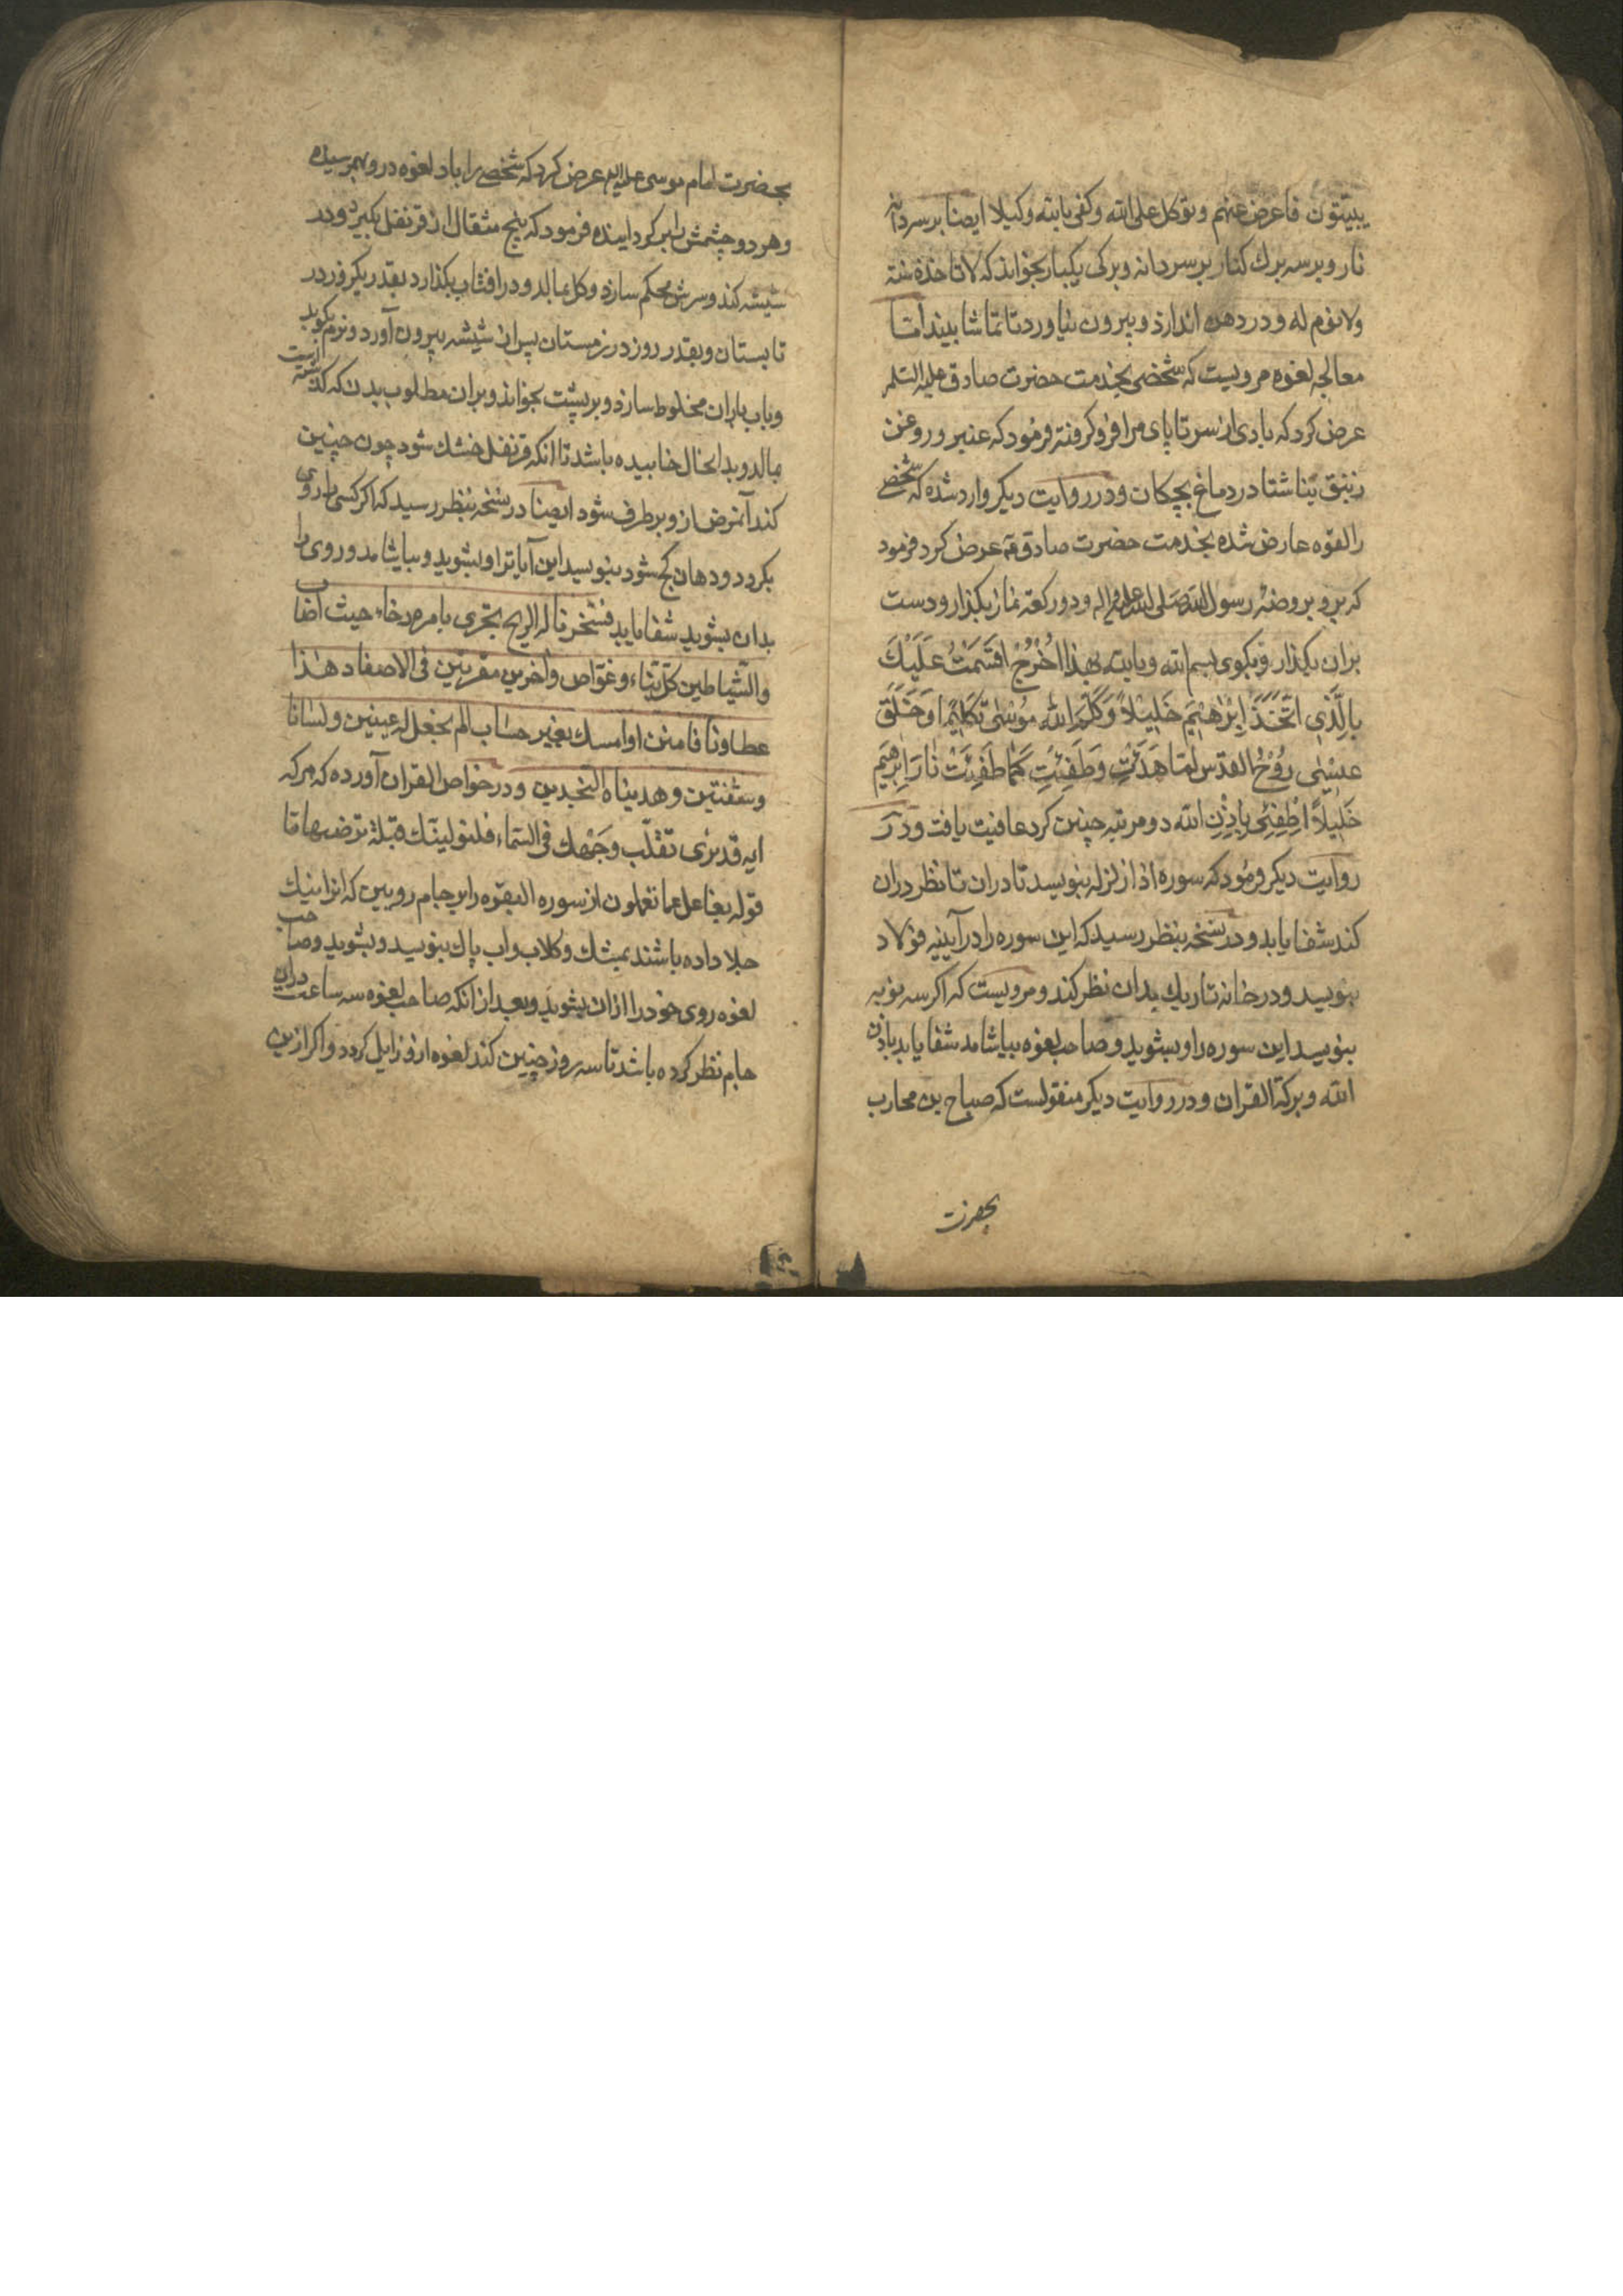 يبيتون فاعرض عنهم وتوكل على الله وكفى بالله وكيلا ايضا بر سه دانه
نار و بر سه برك كنار بر سر دانه و بركى يكبار بخواند كه لا تاخذه سنة
ولا نوم له و در دهن اندازد و بيرون نياورد تا تماشا بيند اما
معالجه لغوه مرويست كه شخصى بخدمت حضرت صادق عليه السلم
عرض كرد كه بادى از سر تا پاى مرا فرو كرفته فرمود كه عنبر و روغن
زنبق بناشتا در دماغ بچكان و در روايت ديكر وارد شده كه شخصى
را لقوه عارض شده بخدمت حضرت صادق عرض كرد فرمود
كه برو بروضه رسول الله صلى الله عليه واله و دو ركعة نماز بكذار و دست
بران بكذار و بكوى بسم الله و بالله بهذا اُخْرُجْ اقسَمْتُ عَلَيْكَ
بِالَّذى اتَّخَذَ اِبْرٰهيٖمَ خَليٖلاً وَكَلَّمَ الله مُوسٰى تكليٖما وَخَلَقَ
عيسٰى رُوْحُ القدس لمّا هَدَئتِ وَطَفِئْتِ كَمٰا طَفِئَتْ نٰارَ اِبرٰهيم
خَليلاً اُطْفِئى بِاِذْنِ الله دو مرتبه چنين كرد عافيت يافت و در
روايت ديكر فرمود كه سوره اذا زلزله بنويسد تا دران تا نظر دران
كند شفا يابد و در نسخه بنظر رسيد كه اين سوره را در آيينه فولاد
بنويسد و در خانه تاريك بدان نظر كند و مرويست كه اكر سه نوبه
بنويسد اين سوره را و بشويد و صاحب لغوه بياشامد شفا يابد باذن
الله و بركة القران و در روايت ديكر منقولست كه صباح بن محارب
بحضرت
بحضرت امام موسى عليه السلم عرض كرد كه شخصى را باد لغوه در روبهمرسيده
و هر دو چشمش را بر كردانيده فرمود كه پنج مثقال از قرنفل بكيرد و در
شيشه كند و سرش محكم سازد و كل بمالد و در افتاب بكذارد بقدر يكروز در
تابستان و بقدر روز در زمستان پس از شيشه بيرون آورد و نرم بكوبد
و باب باران مخلوط سازد و بر پشت بخواند و بران مطلوب بدن كه كذشته است
بمالد و بدانحال خابيده باشد تا انكه قرنفل خشك شود چون چنين
كند آنمرض از و برطرف شود ايضا در نسخه بنظر رسيد كه اكر كسى را روى
بكردد و دهان كج شود بنويسد اين آياترا و بشويد و بياشامد و روى را
بدان بشويد شفا يابد فسخرنا له الريح تجرى بامره رخاء حيث اصاب
والشياطين كل بناء وغواص واخرين مقرنين فى الاصفاد هٰذا
عطاونا فامنن او امسك بغير حساب الم نجعل له عينين ولسانا
وشفتين وهديناه النجدين و در خواص القران آورده كه هر كه
ايه قد نرى تقلب وجهك فى السماء فلنولينك قبلة ترضيها تا
قوله بغافل عما تعملون از سوره البقره را بر جام رويين كه انرا نيك
جلا داده باشند بمشك و كلاب و اب پاك بنويسد و بشويد و صاحب
لغوه روى خود را ازان بشويد و بعد از انكه صاحب لغوه سه ساعت دران
جام نظر كرده باشد تا سه روز چنين كند لغوه از و زايل كردد و اكر ازين